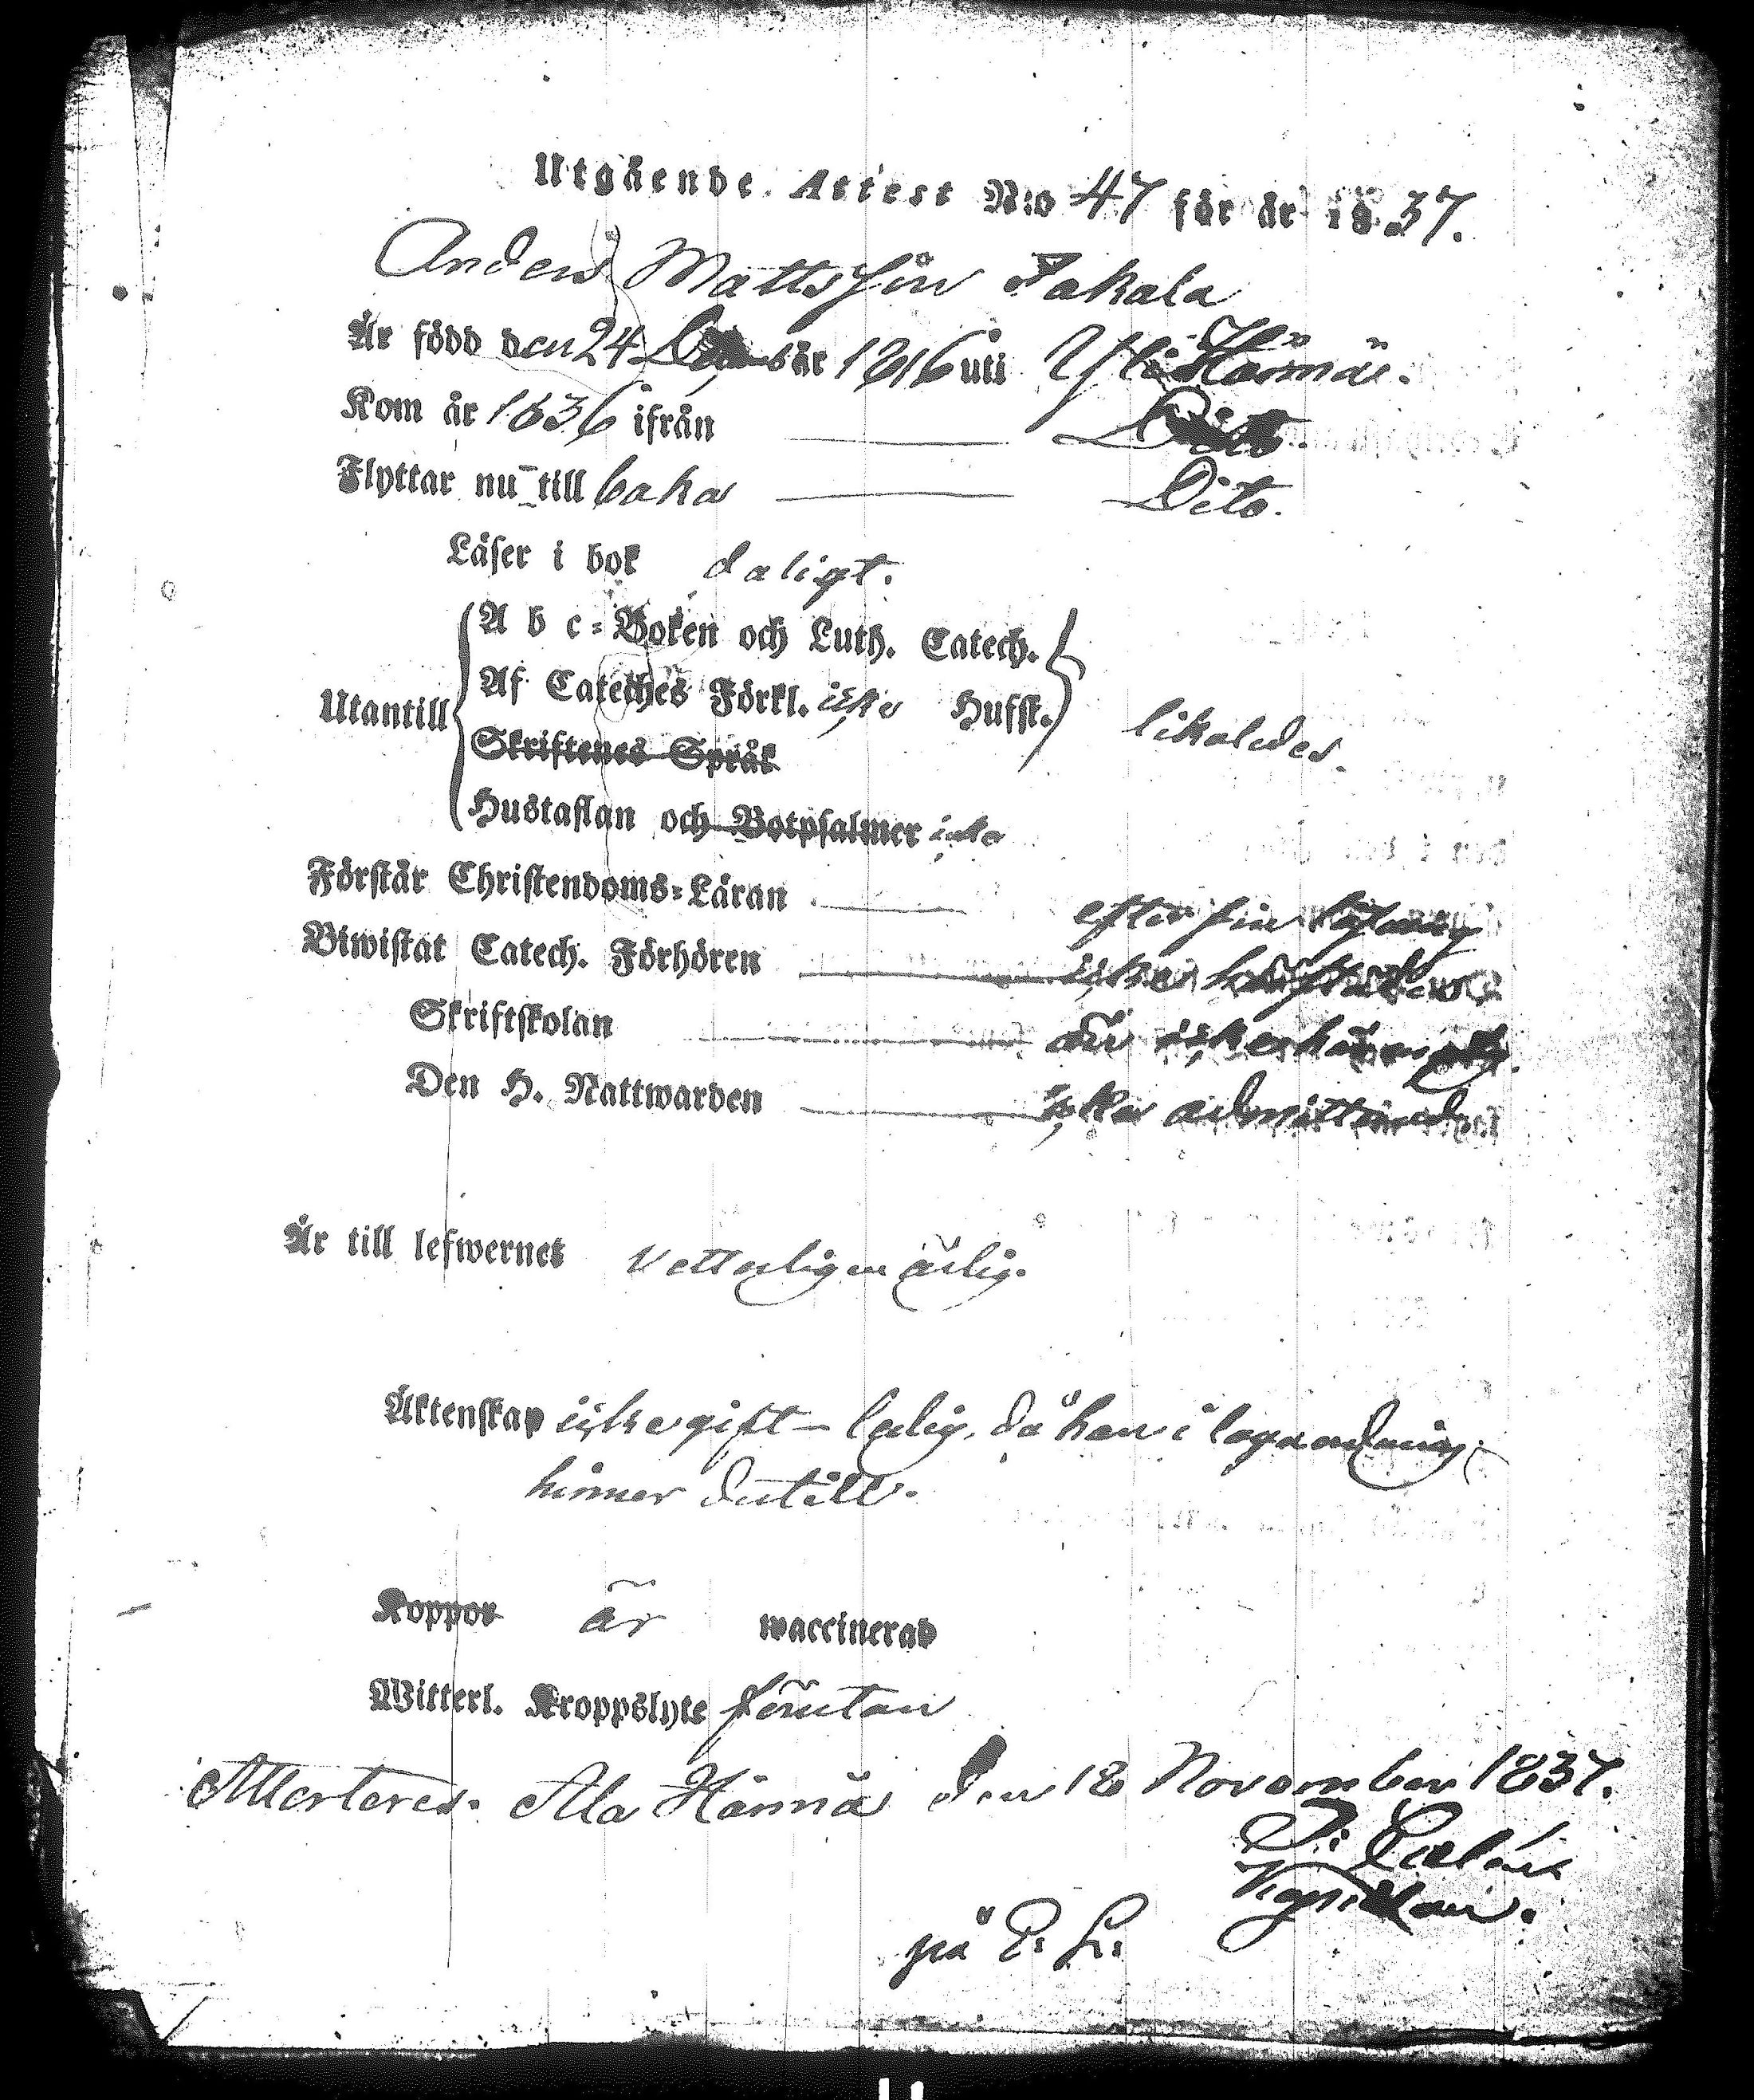 Utgående Attest N:o 47 för år 1837.
Anders Mattsson Jakala
Är född den 24 år 1816 uti Ylihärmä.
Kom år 1836 ifrån Dito
Flyttar nu till baka Dito.
Läser i bok daligt.
A b c-Boken och Luth. Catech.
Af Cateches Förkl. icke Hufsk.
Utantill likaledes.
Skriftenes Språk
Hustaflan och Botpsalmer icke
Förstår Christendoms-Läran efter sin läsning
Biwistat Catech. Förhören icke
Skriftskolan är icke
Den H. Nattwarden icke admitterad
Är till lefwernet Vetterligen ärlig.
Äktenskap icke gift - ledig, då han i laga ordning
hinner dertill.
Koppor är waccinerad
Witterl. Kroppslyte förutan
Attesteres. Ala Härmä den 18 November 1837.
Kapellan.
på P: L: